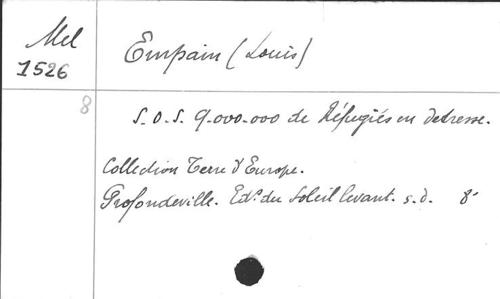 Mel
1526
Empain (Louis)
8
S.O.S. 9.000.000 de Réfugiés en detresse.
Collection Terre d'Europe.
Profondeville. Edns du Soleil levant. s.d. 8°